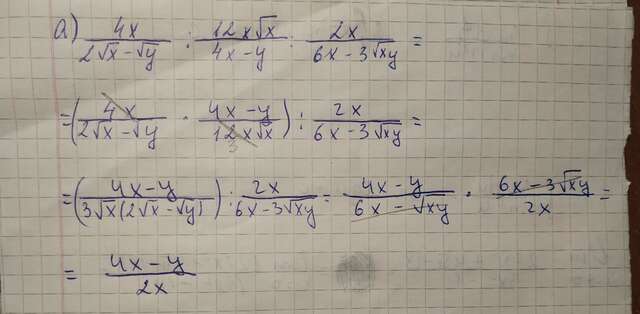 а) 4x/(2√x - √y) : 12x√x/(4x - y) : 2x/(6x - 3√xy) =
= (4x/(2√x - √y) · (4x - y)/(12x√x)) : 2x/(6x - 3√xy) =
= ((4x - y)/(3√x(2√x - √y))) : 2x/(6x - 3√xy) = (4x - y)/(6x - √xy) · (6x - 3√xy)/2x =
= (4x - y)/2x